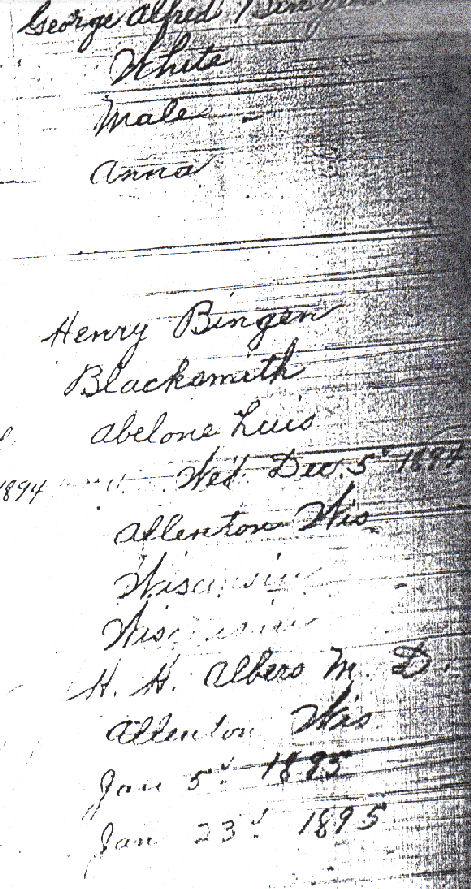 George Alfred
White
Male
Anna
Henry Bingen
Blacksmith
Abelone Luis
1894 " Wed. Dec. 5" 1894
Allenton Wis
Wisconsin
Wisconsin
H. H. Albers M. D.
Allenton Wis
Jan 5" 1895
Jan 23d 1895